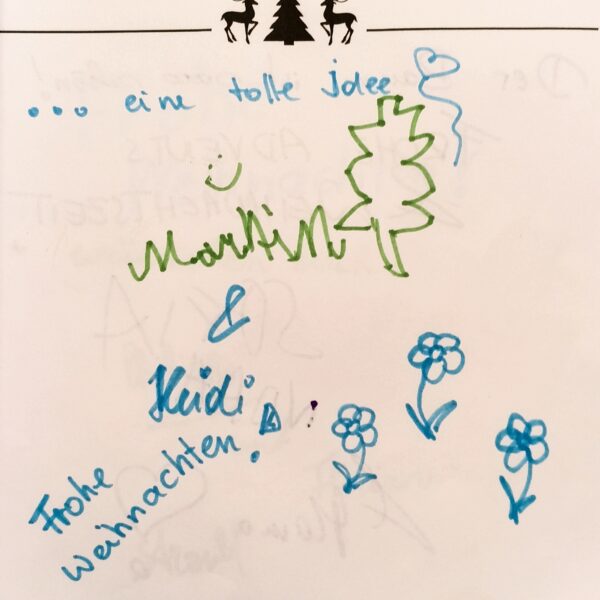 ... eine tolle Idee
Martin
&
Heidi
Frohe
Weihnachten!